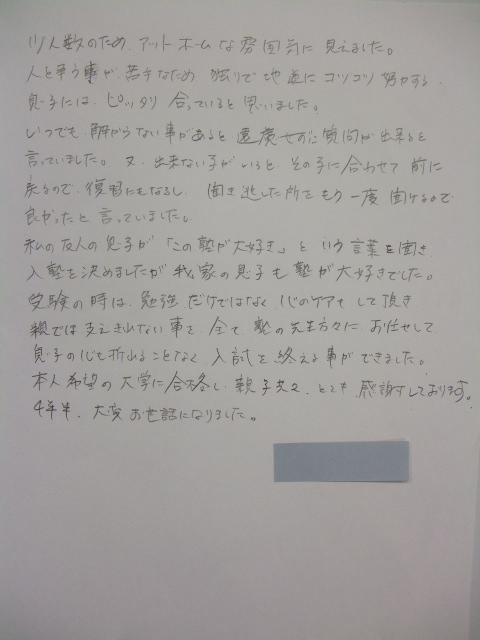 少人数のため、アットホームな雰囲気に見えました。
人と争う事が、苦手なため 独りで地道にコツコツ努力する、
息子には、ピッタリ合っていると思いました。
いつでも、解からない事があると、遠慮せずに質問が出来ると
言っていました。又、出来ない子がいると、その子に合わせて前に
戻るので、復習にもなるし、聞き逃した所をもう一度聞けるので
良かったと言っていました。
私の友人の息子が「この塾が大好き」という言葉を聞き、
入塾を決めましたが我家の息子も塾が大好きでした。
受験の時は、勉強だけではなく、心のケアもして頂き
親では支えきれない事を、全て、塾の先生方々にお任せして
息子の心も折れることなく、入試を終える事ができました。
本人希望の大学に合格し、親子共々、とても感謝しております。
4年半、大変お世話になりました。